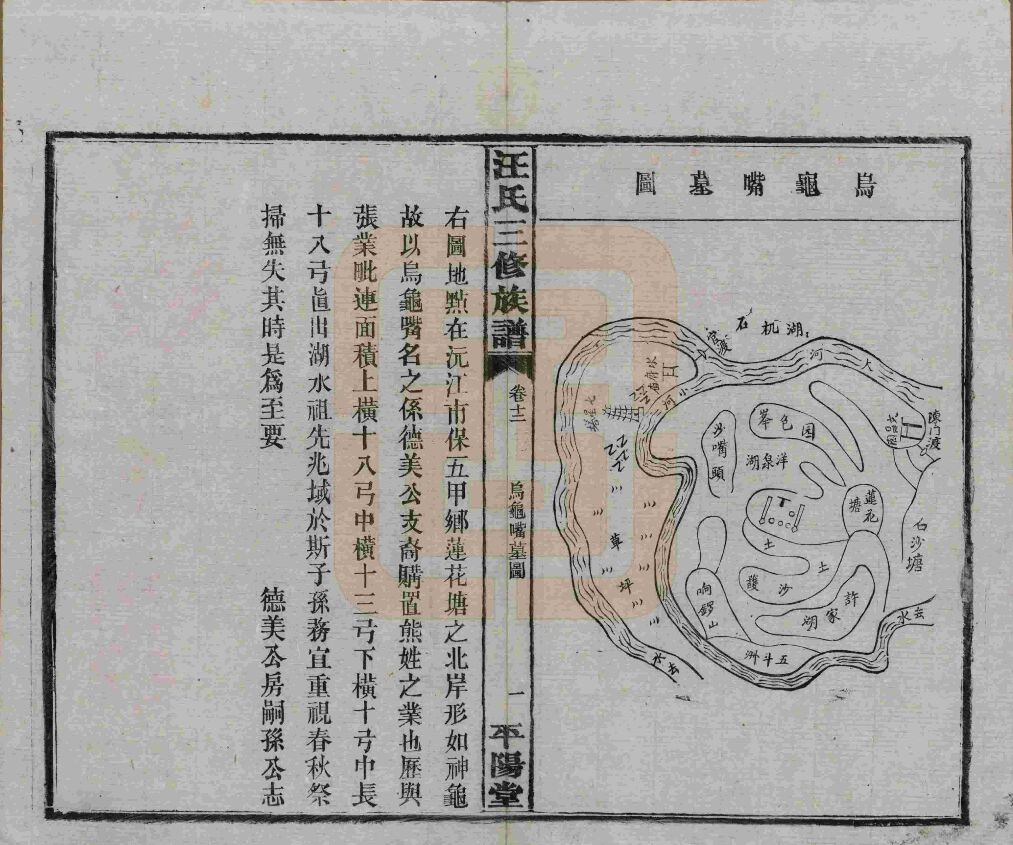 烏龜嘴墓圖
湖杭石
官渡
大河
小河
陳門渡
石沙塘
蓮花塘
团包峯
洋泉湖
沙嘴頭
土
土
沙
許家湖
响鑼山
五斗洲
草坪
水去
水去
汪氏三修族譜
卷十二
烏龜嘴墓圖
一
平陽堂
右圖地點在沅江市保五甲鄉蓮花塘之北岸形如神龜
故以烏龜嘴名之係德美公支裔購置熊姓之業也歷與
張業毗連面積上橫十八弓中橫十三弓下橫十弓中長
十八弓直出湖水祖先兆域於斯子孫務宜重視春秋祭
掃無失其時是為至要
德美公房嗣孫公志